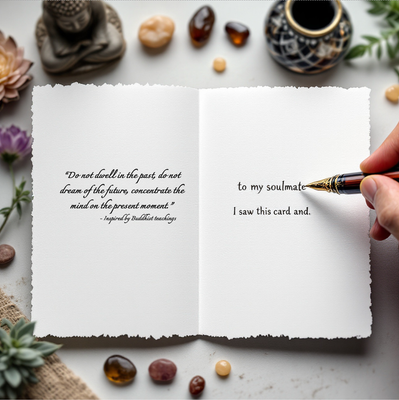 “Do not dwell in the past, do not
dream of the future, concentrate the
mind on the present moment.”
- Inspired by Buddhist teachings
to my soulmate
I saw this card and.